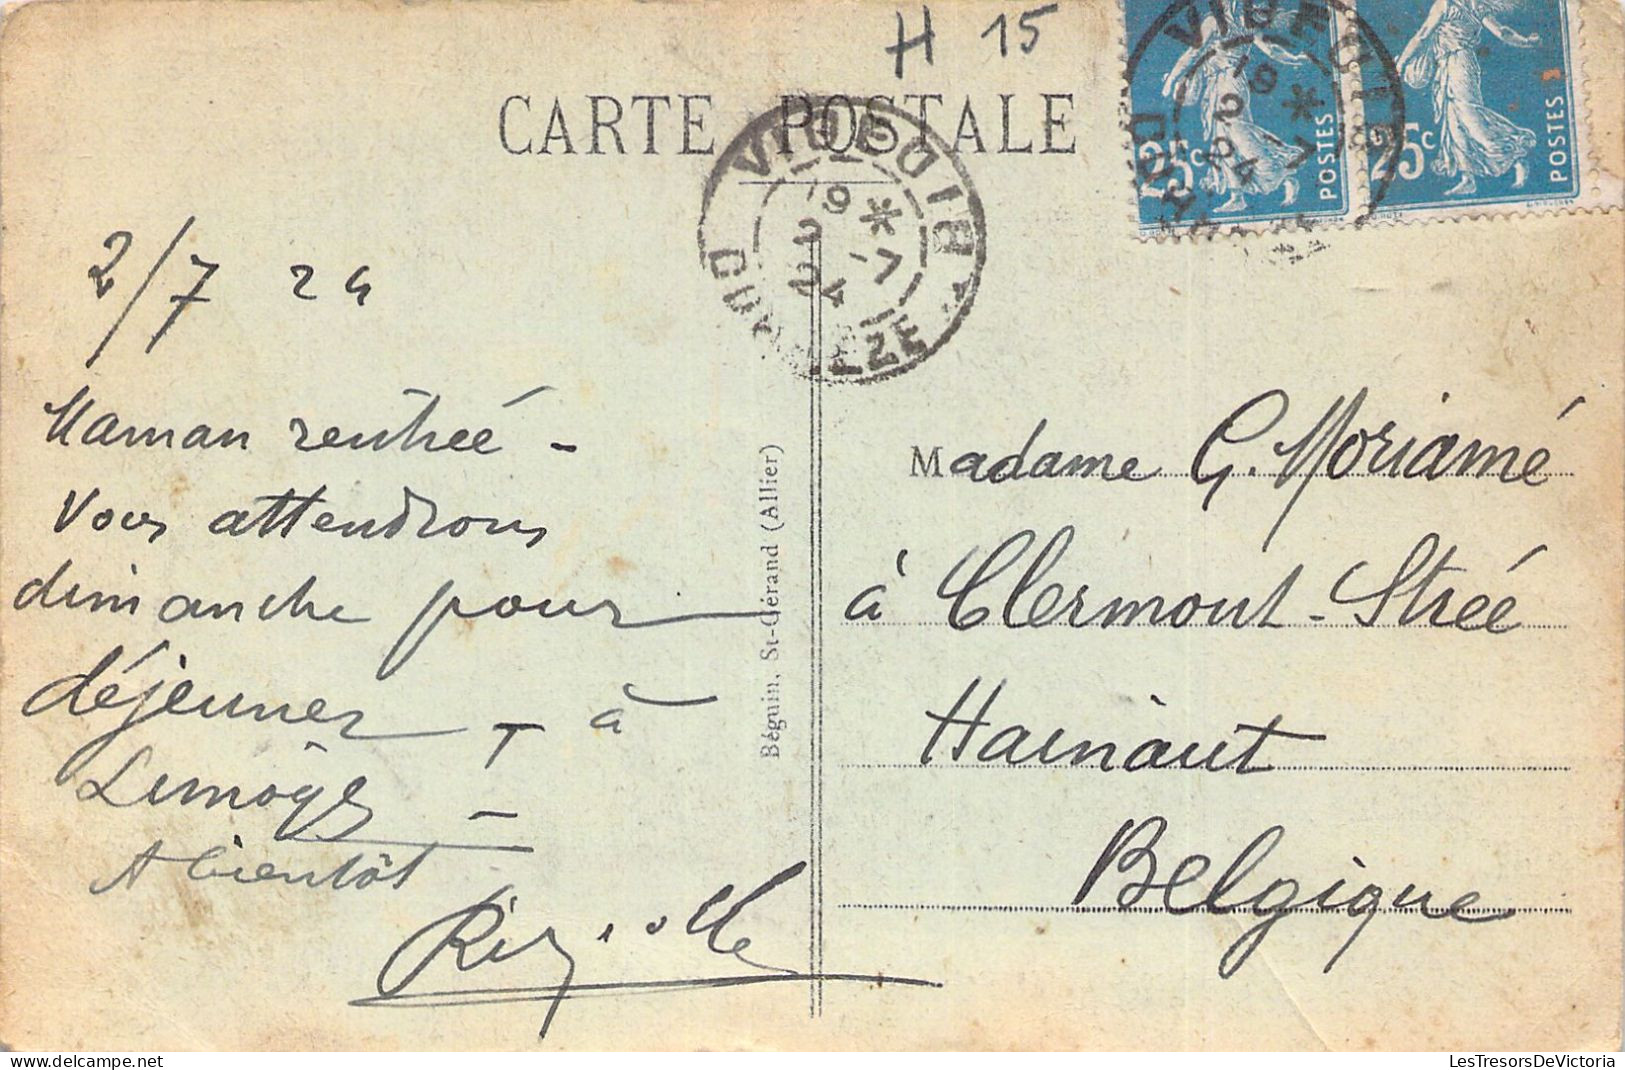 H 15
CARTE POSTALE
25c POSTES
25c POSTES
19 *
2 -7
24
2/7 24
Maman rentrée -
Vous attendrons
dimanche pour
déjeuner - à
Limoges -
A bientôt
Béguin, St-Gérand (Allier)
Madame G. Moriamé
à Clermont-Strée
Hainaut
Belgique
LesTresorsDeVictoria